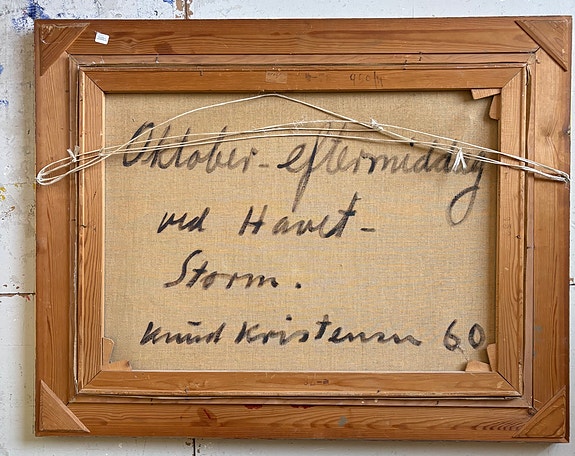 Oktober-eftermiddag
ved Havet-
Storm.
Knud Kristensen 60